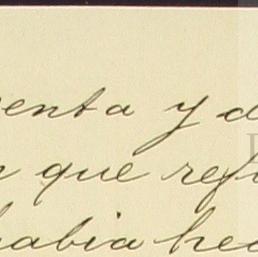 enta y d
que ref
habia hec